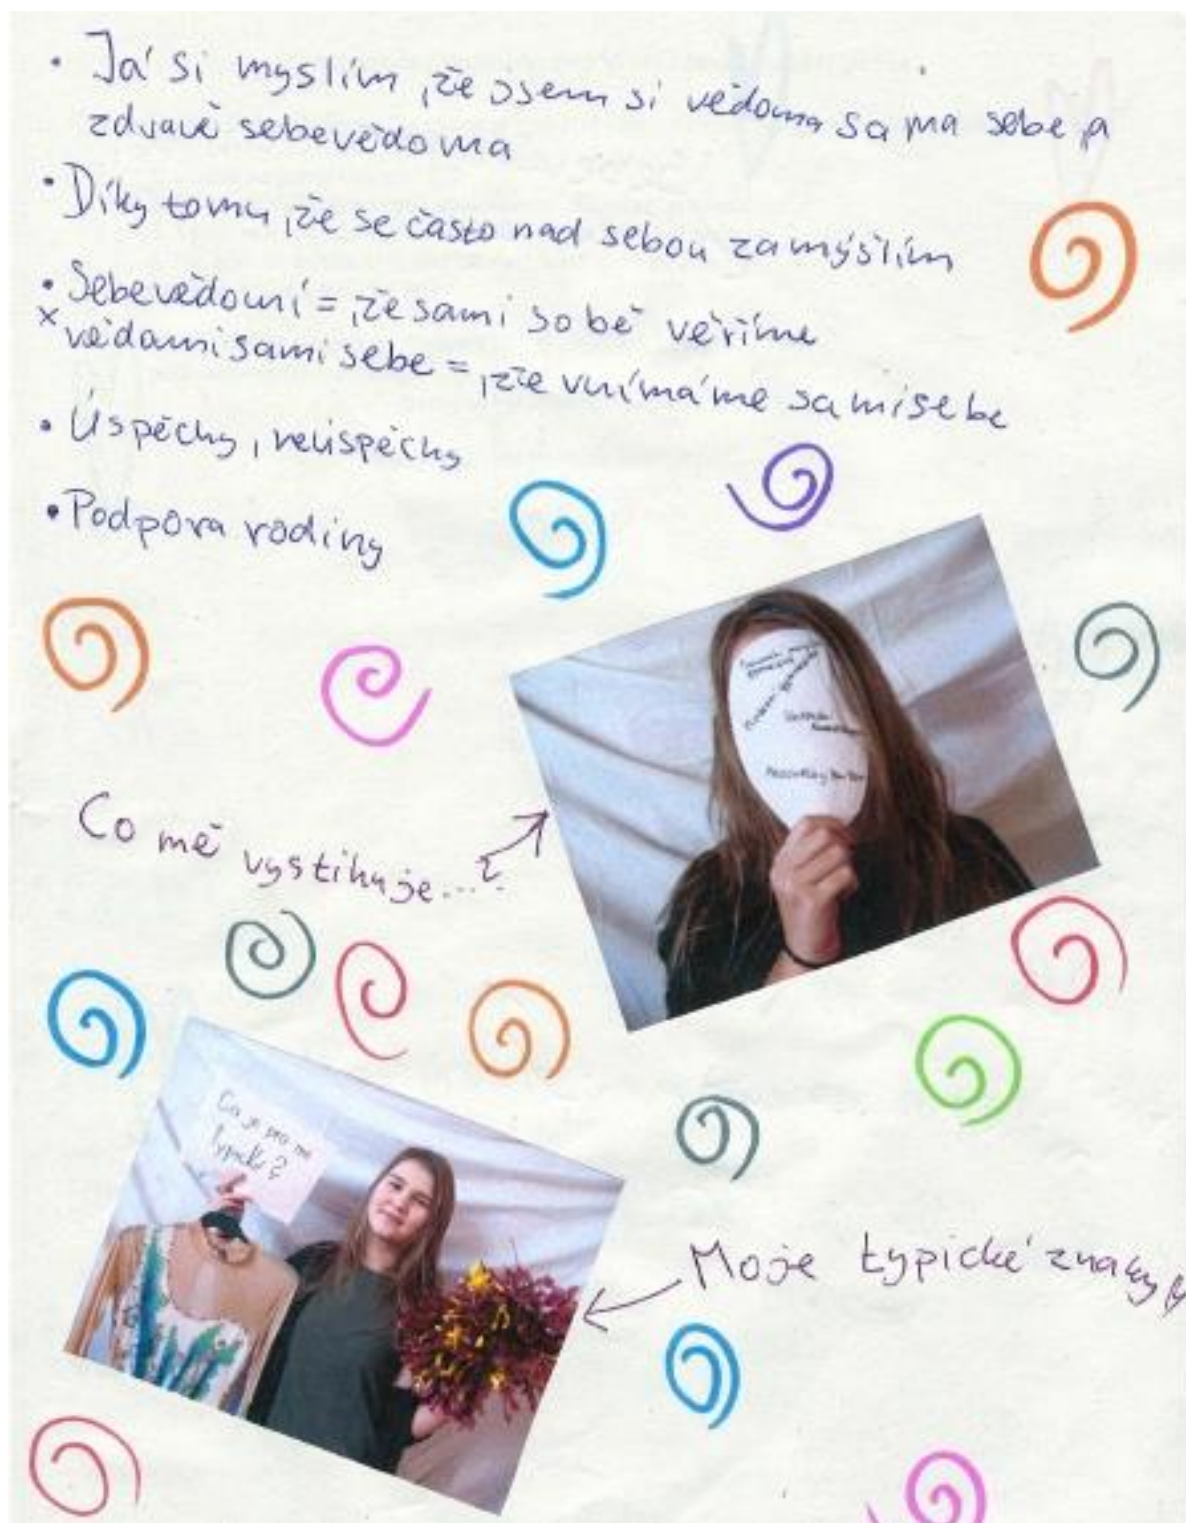 • Já si myslím, že jsem si vědoma sama sebe a
zdravě sebevědoma
• Díky tomu, že se často nad sebou zamýšlím
• Sebevědomí = že sami sobě věříme
x vědomi sami sebe = že vnímáme sami sebe
• Úspěchy, neúspěchy
• Podpora rodiny
Co mě vystihuje...?
Co je pro mě
typické?
Moje typické znaky